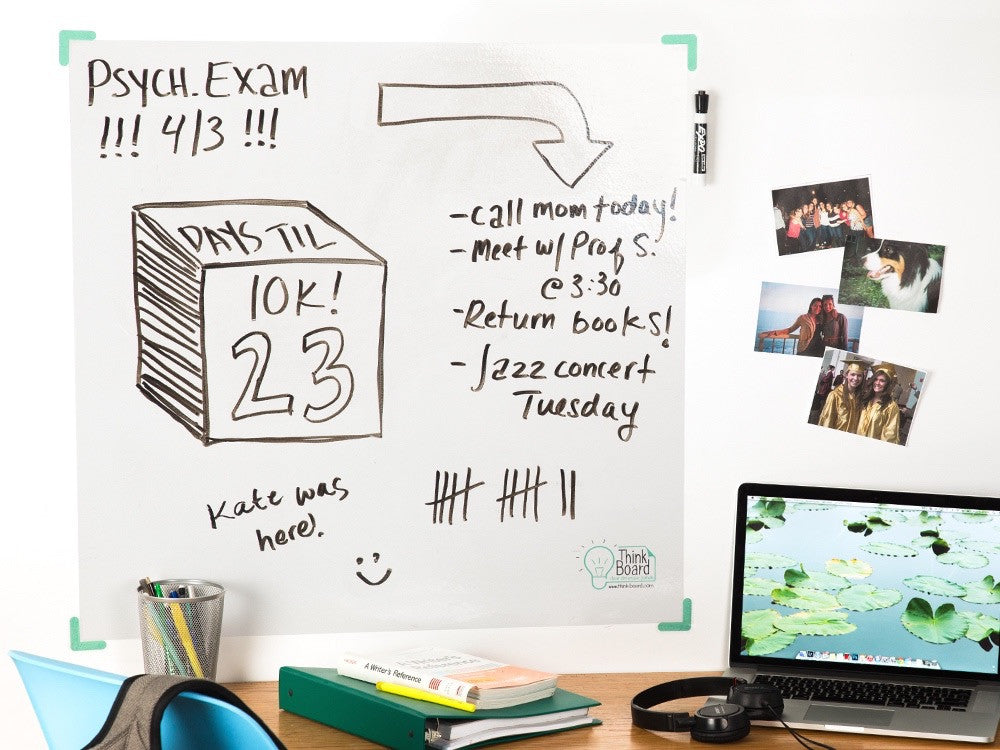 Psych. Exam
!!! 4/3 !!!
DAYS TIL
10K!
23
- Call mom today!
- Meet w/ Prof S.
@ 3:30
- Return books!
- Jazz concert
Tuesday
Kate was
here!
Think
Board
www.think-board.com
EXPO
A Writer's Reference